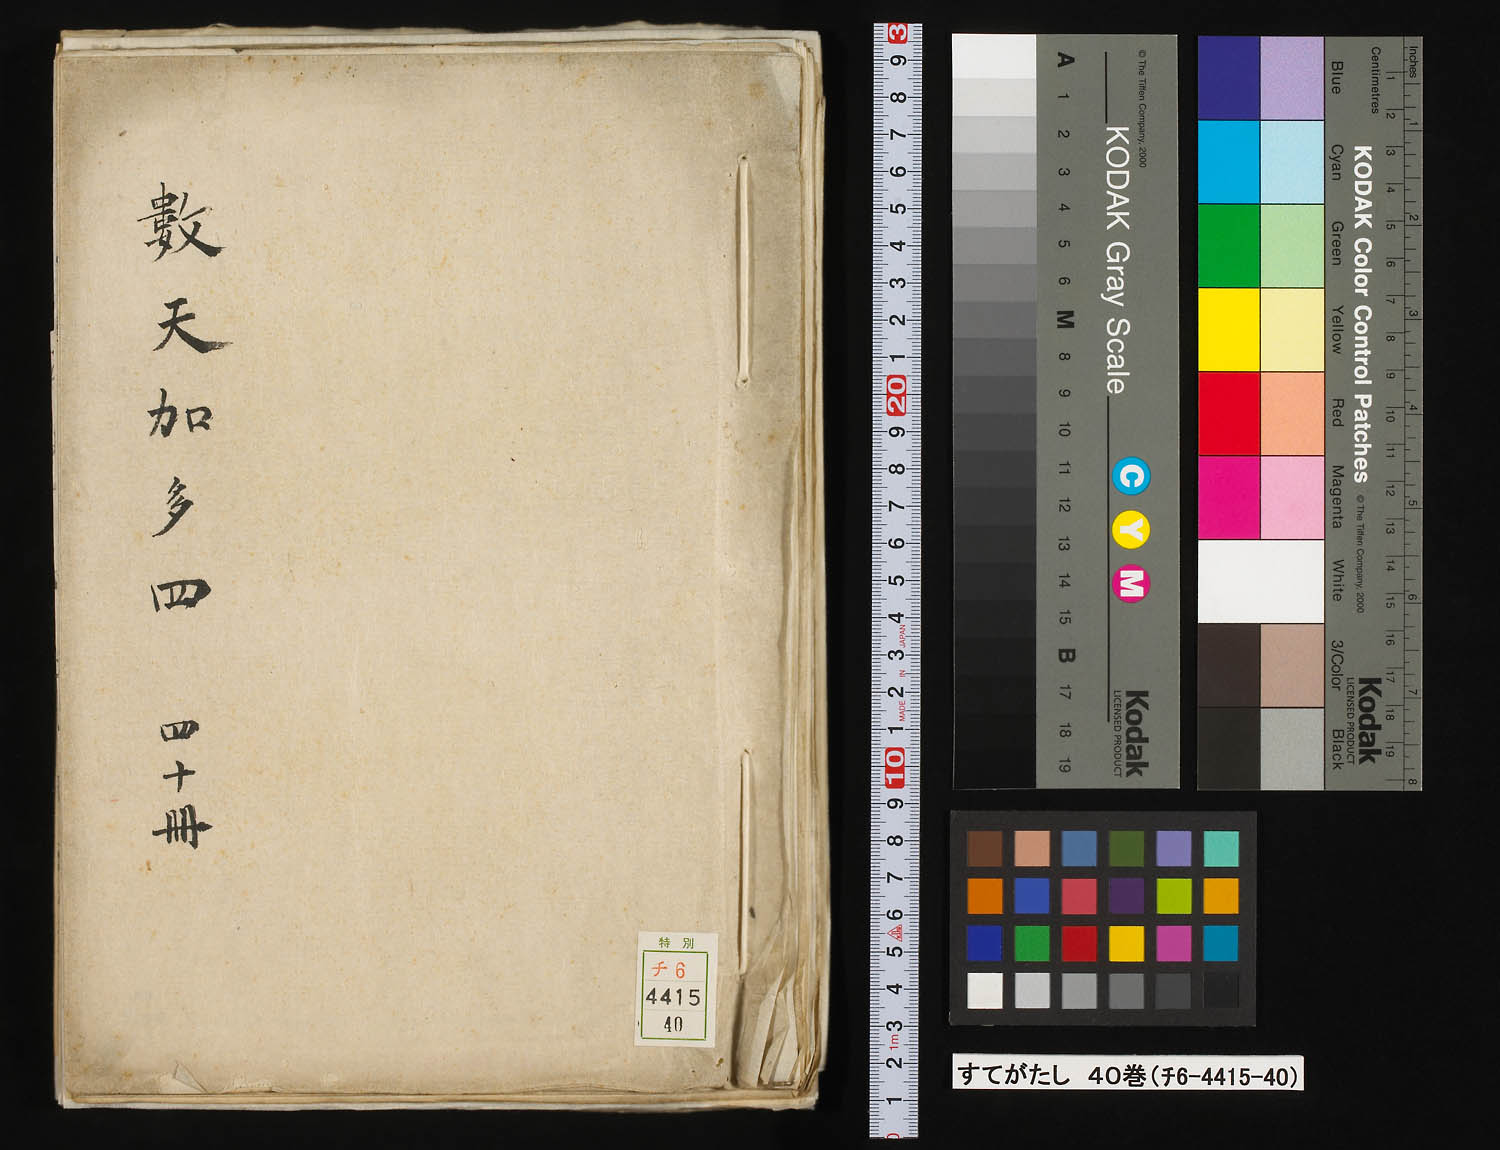 數天加多四 四十冊
特別
チ6
4415
40
3 9 8 7 6 5 4 3 2 1 20 9 8 7 6 5 4 3 2 1 10 9 8 7 6 5 4 3 2 1
MADE IN JAPAN
1m
© The Tiffen Company, 2000
KODAK Gray Scale
C Y M
Kodak
LICENSED PRODUCT
A 1 2 3 4 5 6 M 8 9 10 11 12 13 14 15 B 17 18 19
Inches 1 2 3 4 5 6 7 8
Centimetres 1 2 3 4 5 6 7 8 9 10 11 12 13 14 15 16 17 18 19
KODAK Color Control Patches © The Tiffen Company, 2000
Kodak
LICENSED PRODUCT
Blue Cyan Green Yellow Red Magenta White 3/Color Black
すてがたし 40巻(チ6-4415-40)